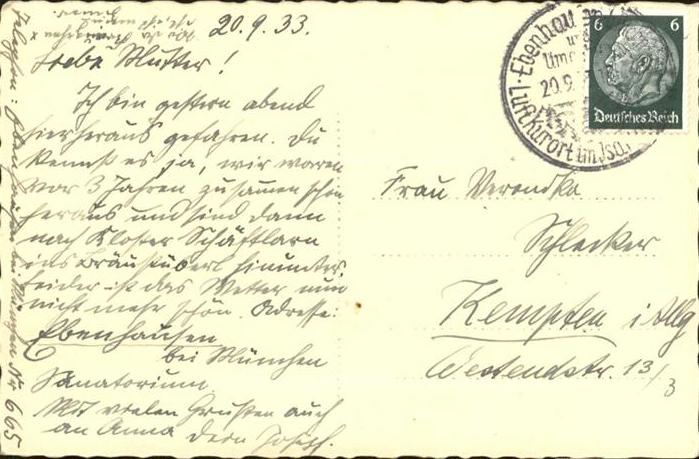 20.9.33.
Liebe Mutter!
Ich bin gestern abend
hierheraus gefahren. Du
kennst es ja, wir waren
vor 3 Jahren zusammen schon
heraus und sind dann
nach Kloster Schäftlarn
ins Bräustüberl hinunter.
Leider ist das Wetter nun
nicht mehr schön. Adresse:
Ebenhausen
bei München
Sanatorium.
Mit vielen Grüßen auch
an Anna Dein Josef.
Ebenhausen bei München Nr 665
Ebenhau
20.9.
Luftkurort im Isar
6 6
Deutsches Reich
Frau Veronika
Schlecker
Kempten i Allg
Westendstr. 13/3